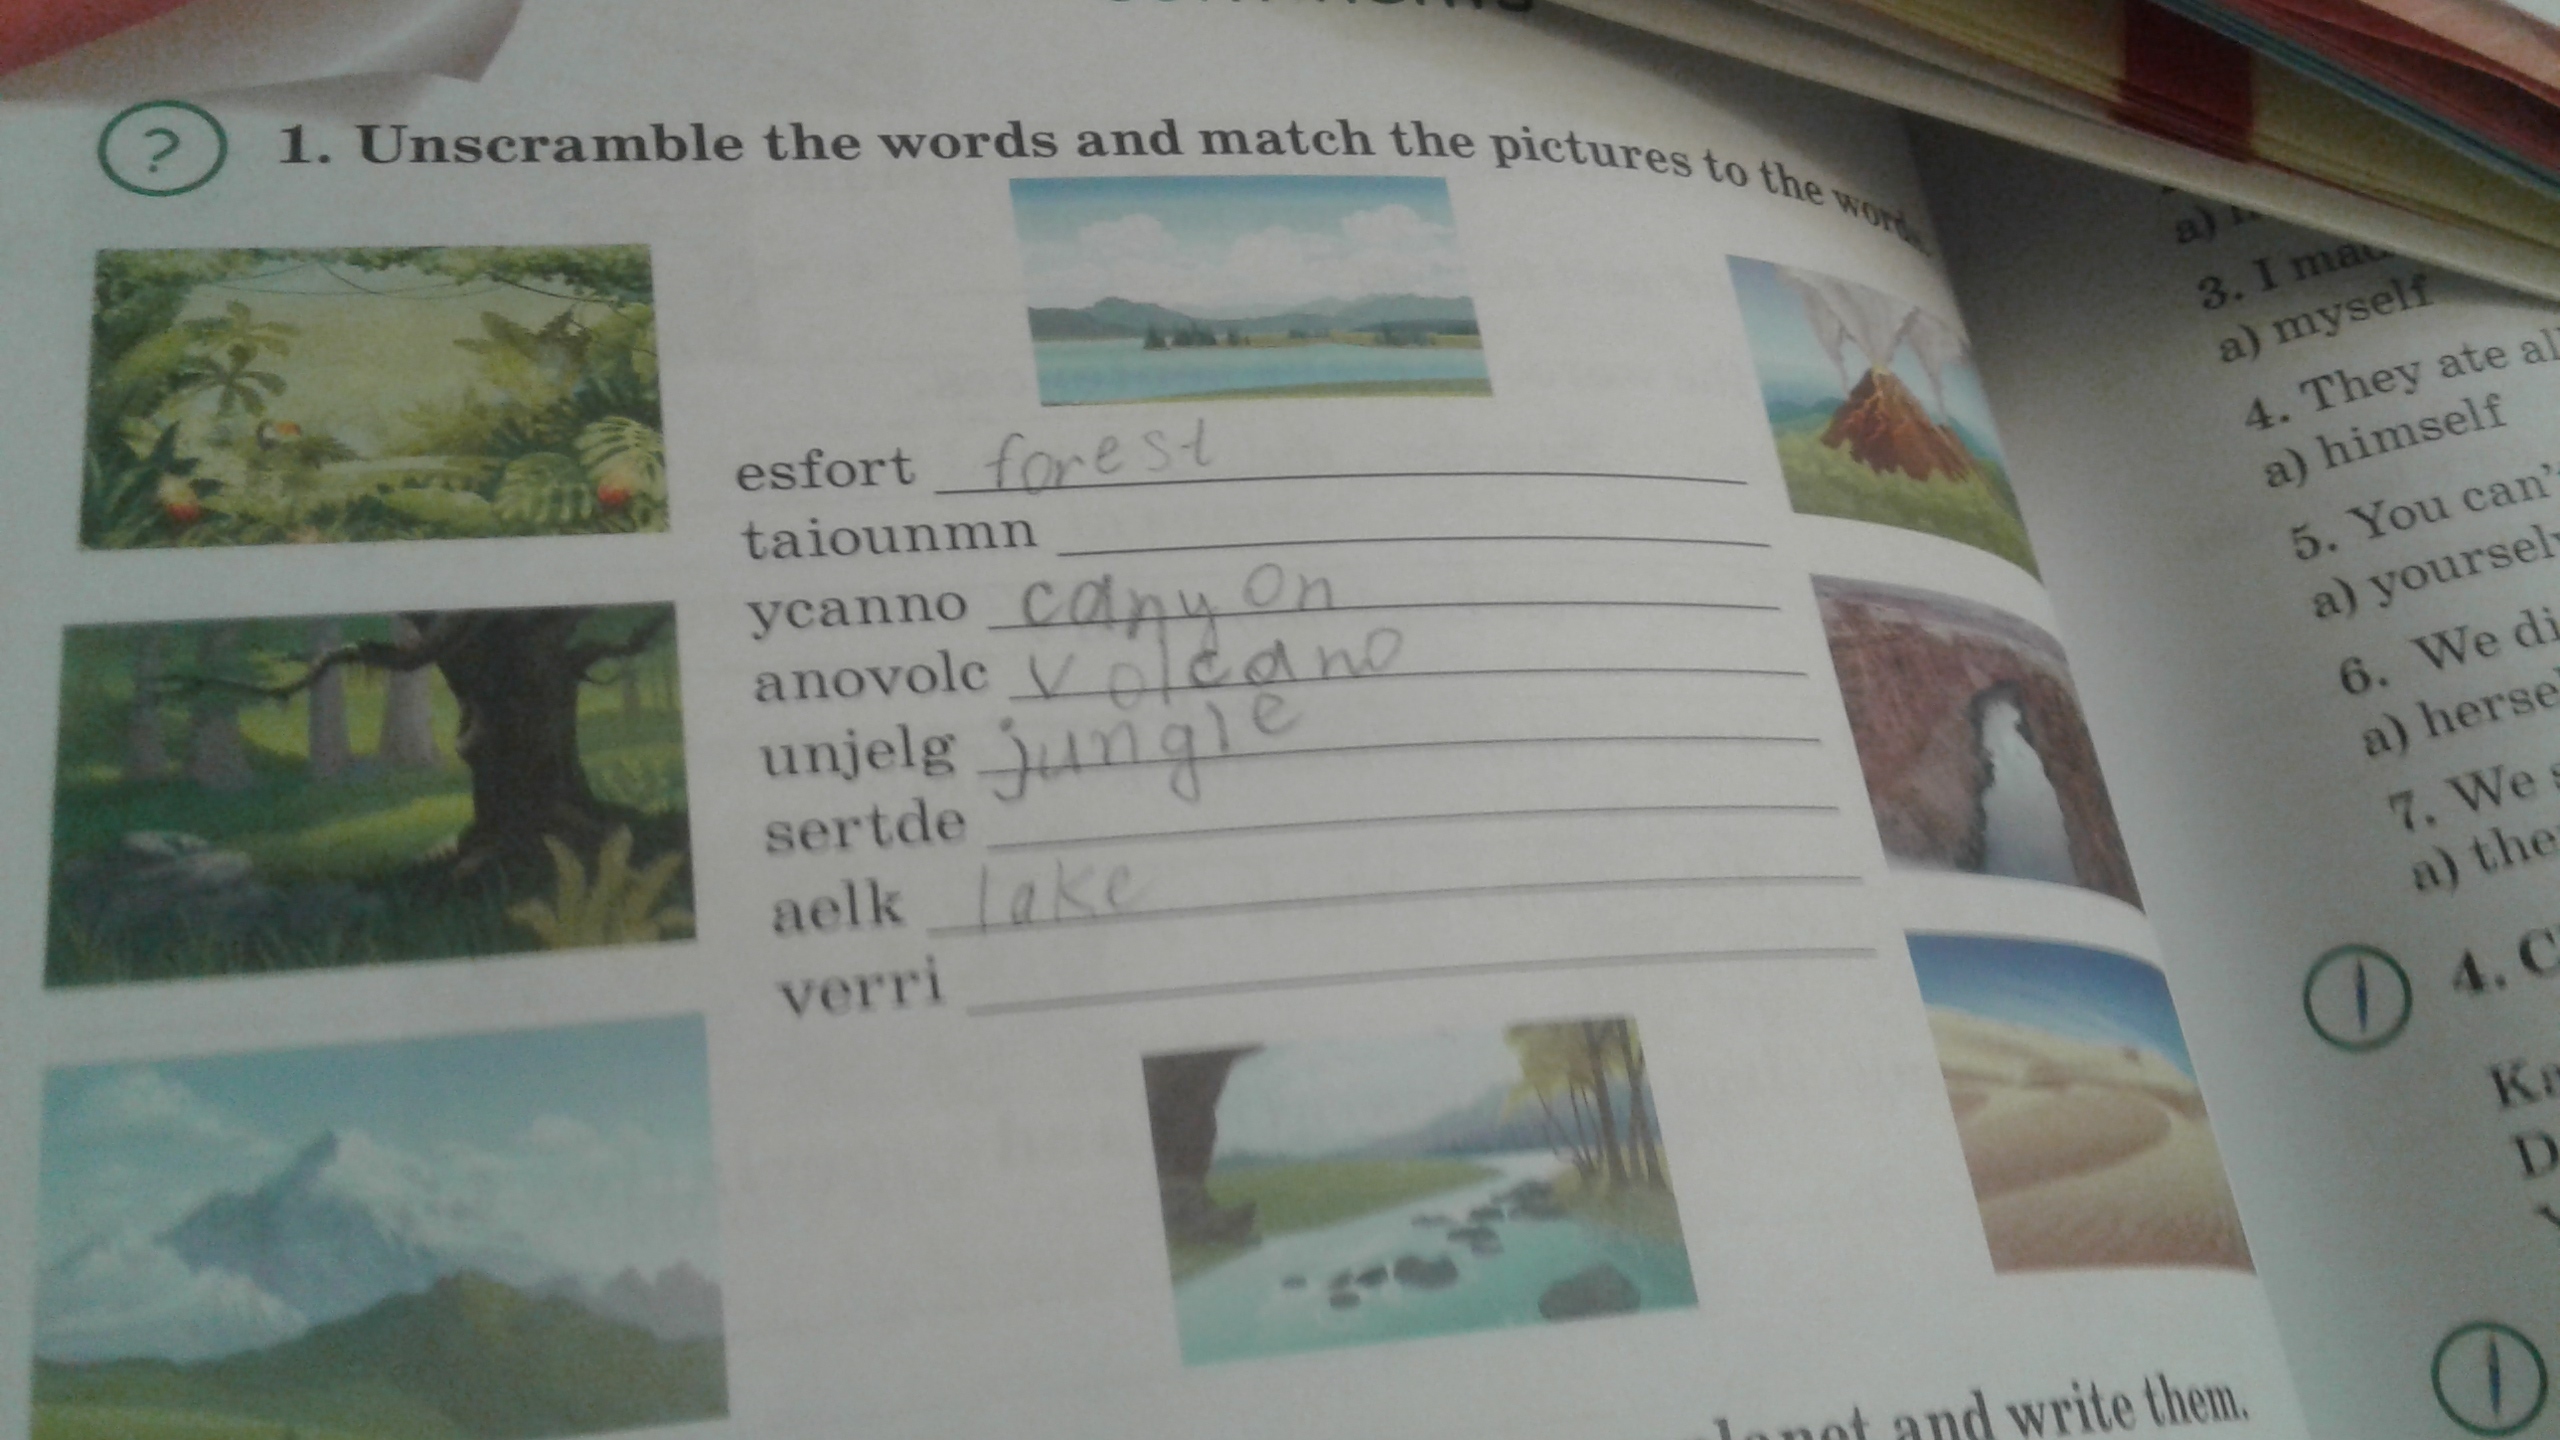 ? 1. Unscramble the words and match the pictures to the words.
esfort forest
taiounmn
ycanno canyon
anovolc volcano
unjelg jungle
sertde
aelk lake
verri
and write them.
a)
3. I
a) myself
4. They ate
a) himself
5. You can't
a)
6. We
a)
7. We
a)
4.